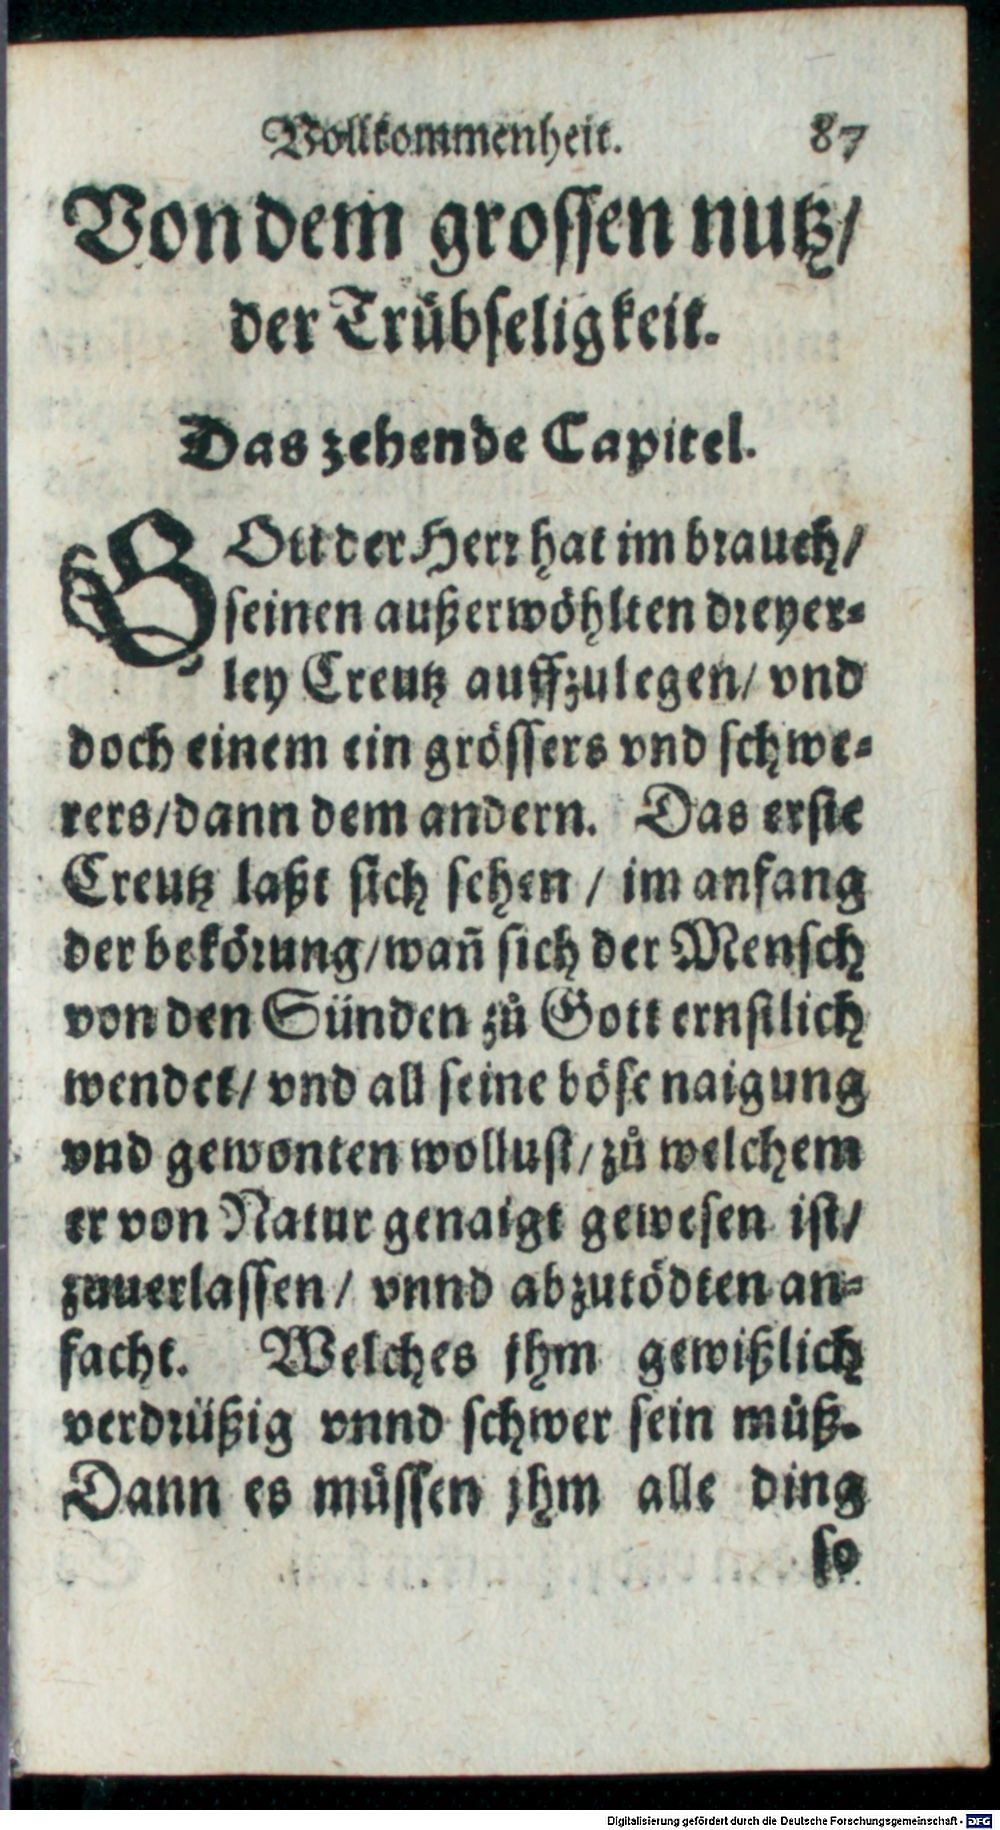 Vollkommenheit. 87
Von dem grossen nutz/
der Trübseligkeit.
Das zehende Capitel.
GOtt der Herr hat im brauch/
seinen außerwöhlten dreyer-
ley Creutz auffzulegen/ vnd
doch einem ein grössers vnd schwe-
rers/dann dem andern. Das erste
Creutz laßt sich sehen / im anfang
der bekörung/wañ sich der Mensch
von den Sünden zů Gott ernstlich
wendet/ vnd all seine böse naigung
vnd gewonten wollust/zů welchem
er von Natur genaigt gewesen ist/
zuuerlassen/ vnnd abzutödten an-
facht. Welches jhm gewißlich
verdrüßig vnnd schwer sein můß.
Dann es müssen jhm alle ding
so
Digitalisierung gefördert durch die Deutsche Forschungsgemeinschaft - DFG